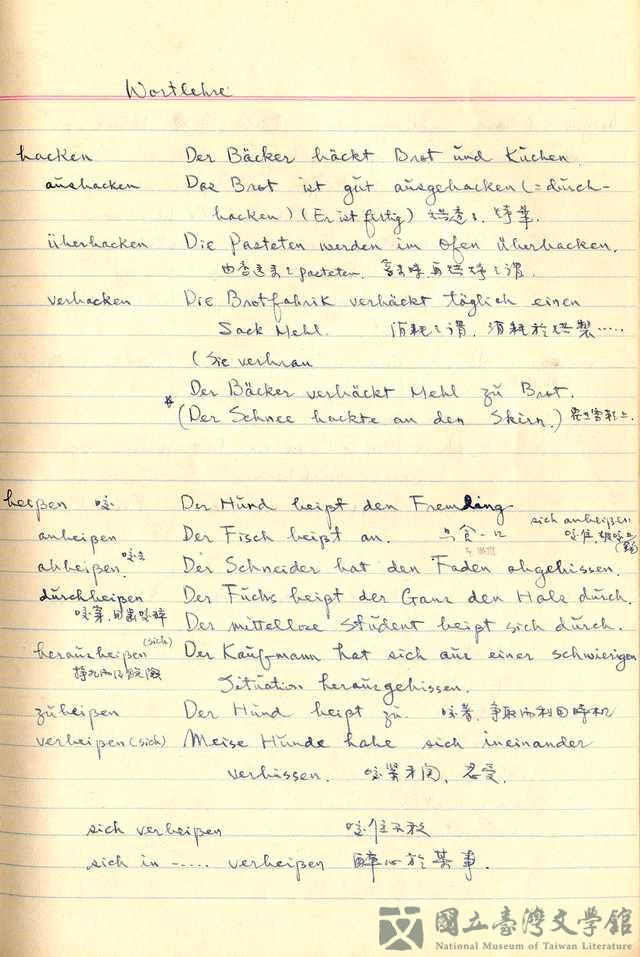 Wortlehre
backen Der Bäcker bäckt Brot und Kuchen.
ausbacken Das Brot ist gut ausgebacken (= durch-
backen) (Er ist fertig)
überbacken Die Pasteten werden im Ofen überbacken.
verbacken Die Brotfabrik verbäckt täglich einen
Sack Mehl. 消耗之謂, 消耗於烘製……
(Sie verbrau
Der Bäcker verbäckt Mehl zu Brot.
(Der Schnee backte an den Skiern.)
beißen 咬 Der Hund beißt den Fremdling
sich anbeißen
anbeißen Der Fisch beißt an.
abbeißen 咬去 Der Schneider hat den Faden abgebissen.
durchbeißen Der Fuchs beißt der Gans den Hals durch.
咬穿, 用齒咬碎 Der mittellose Student beißt sich durch.
herausbeißen (sich) Der Kaufmann hat sich aus einer schwierigen
Situation herausgebissen.
zubeißen Der Hund beißt zu. 咬著, 爭取而利用時机
verbeißen (sich) Meise Hunde habe sich ineinander
verbissen. 咬緊牙関, 忍受.
sich verbeißen 咬住不放
sich in -..... verbeißen 醉心於某事.
國立臺灣文學館
National Museum of Taiwan Literature